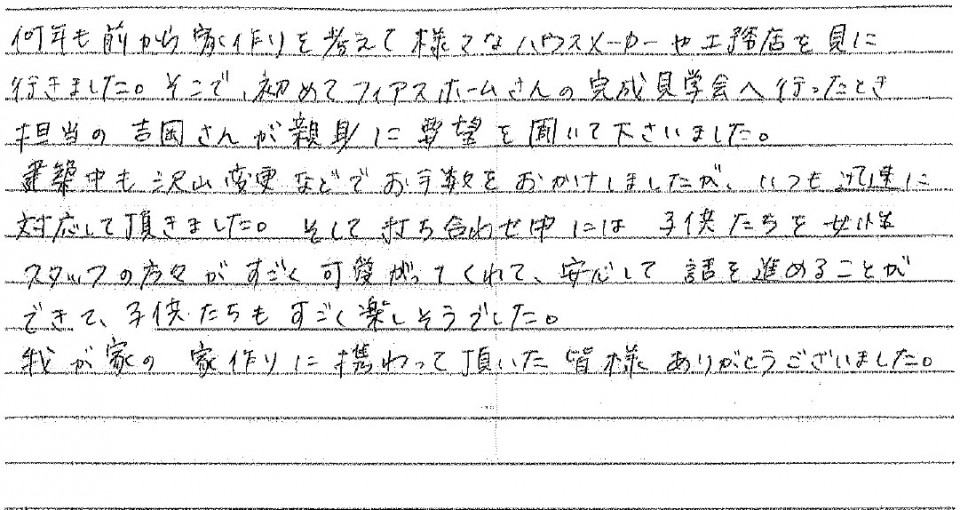 何年も前から家作りを考えて様々なハウスメーカーや工務店を見に
行きました。そこで、初めてフィアスホームさんの完成見学会へ行ったとき
担当の吉岡さんが親身に要望を聞いて下さいました。
建築中も沢山変更などでお手数をおかけしましたが、いつも迅速に
対応して頂きました。そして打ち合わせ中には 子供たちを女性
スタッフの方々がすごく可愛がってくれて、安心して話を進めることが
できて、子供たちもすごく楽しそうでした。
我が家の家作りに携わって頂いた皆様ありがとうございました。